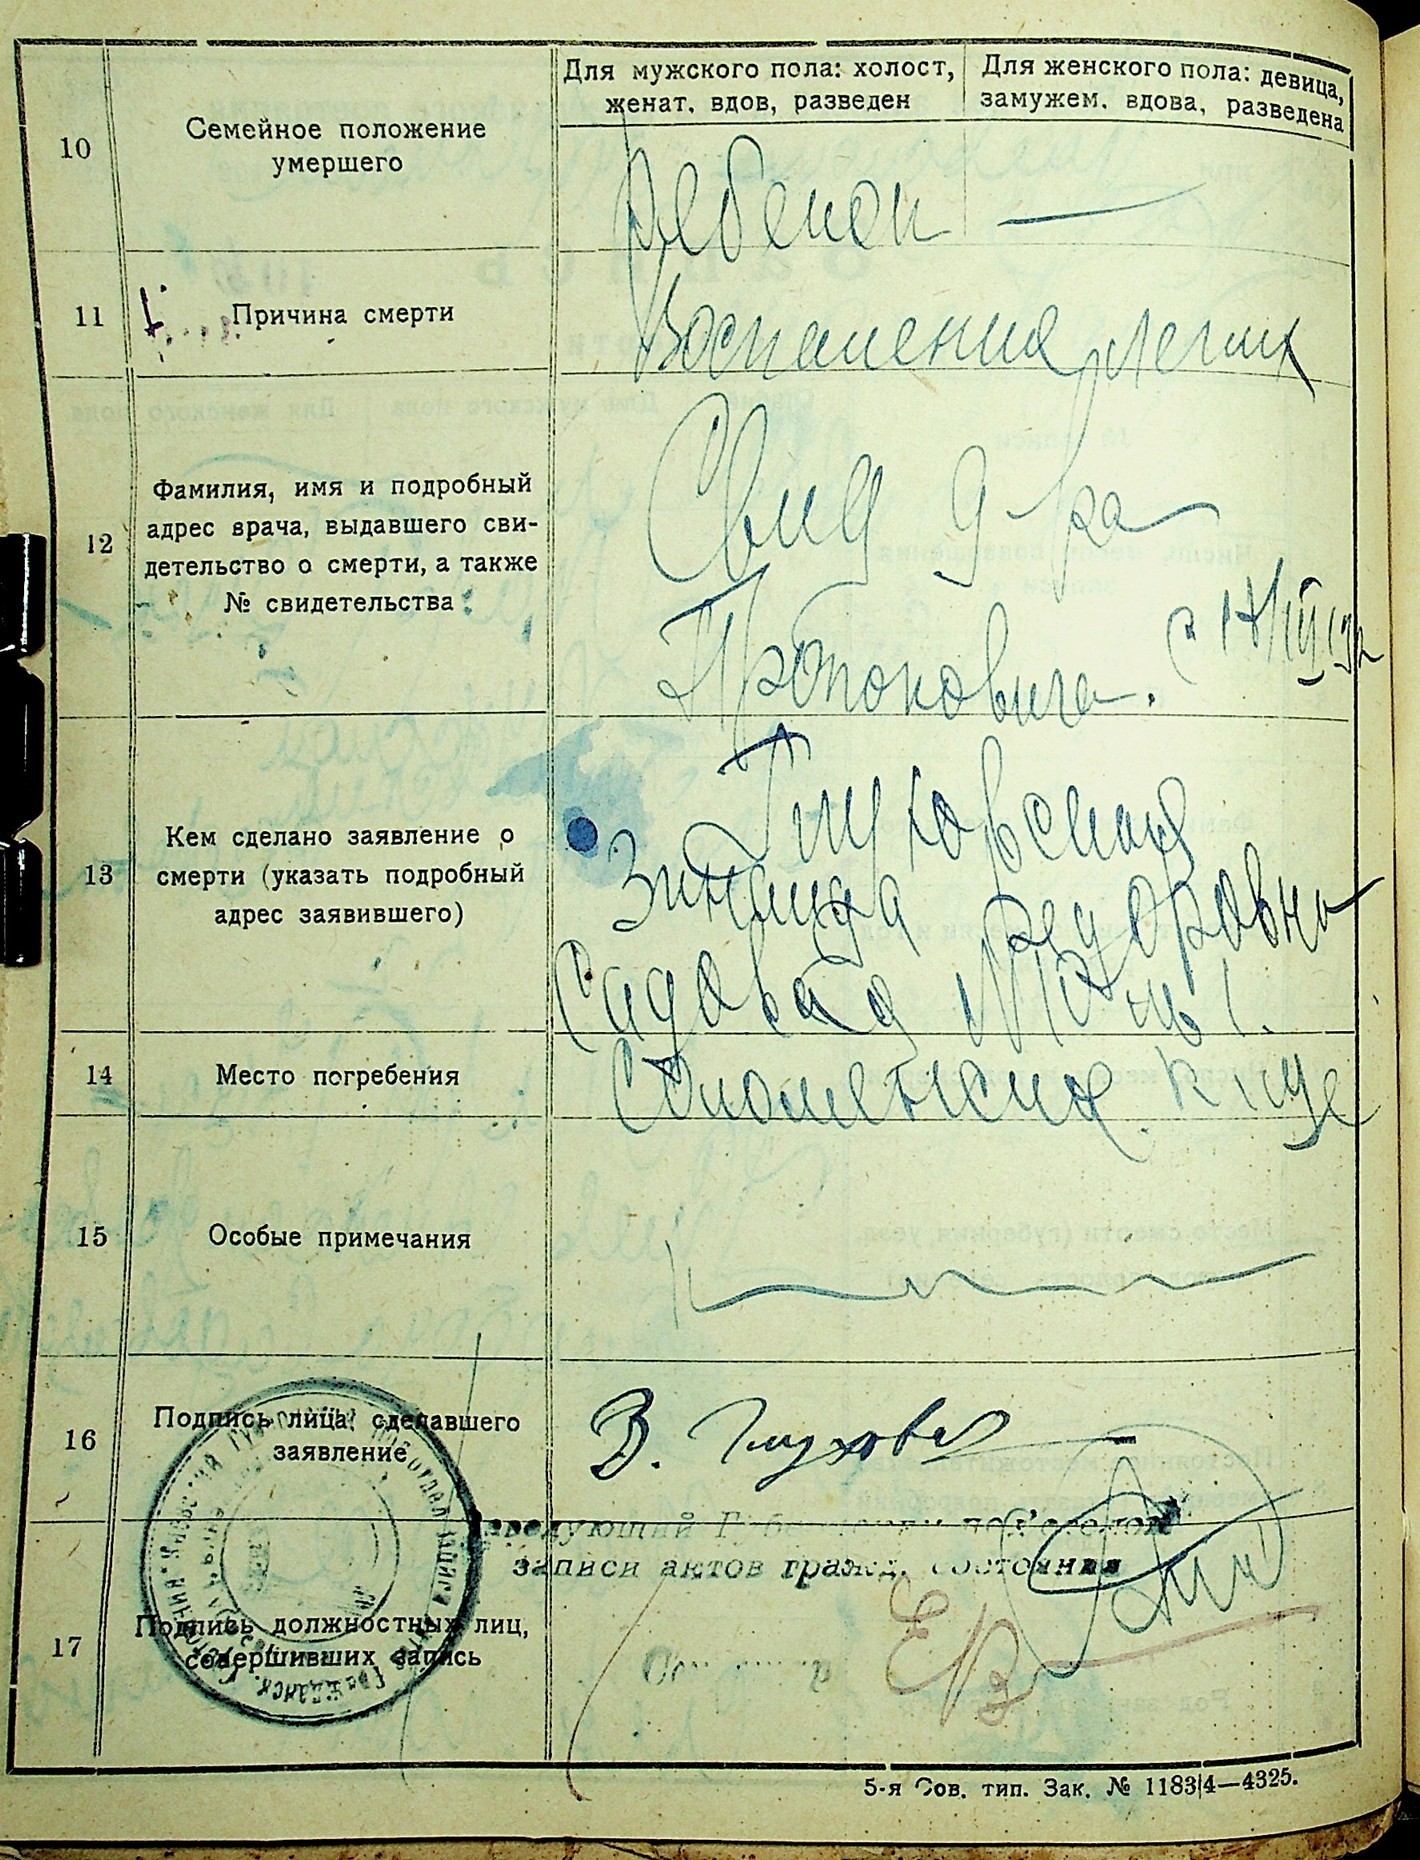 Для мужского пола: холост, женат. вдов, разведен
Для женского пола: девица, замужем. вдова, разведена
10
Семейное положение
умершего
Ребенок —
11
Причина смерти
Воспаления легких
12
Фамилия, имя и подробный
адрес врача, выдавшего сви-
детельство о смерти, а также
№ свидетельства:
Свид д-ра
с 17/
13
Кем сделано заявление о
смерти (указать подробный
адрес заявившего)
Глуховская
Зинаида Федоровна
Садовая
14
Место погребения
15
Особые примечания
16
Подпись лица, сделавшего
заявление
В. Глухова
записи актов гражд. состояния
17
Подпись должностных лиц,
совершивших запись
5-я Сов. тип. Зак. № 1183|4—4325.